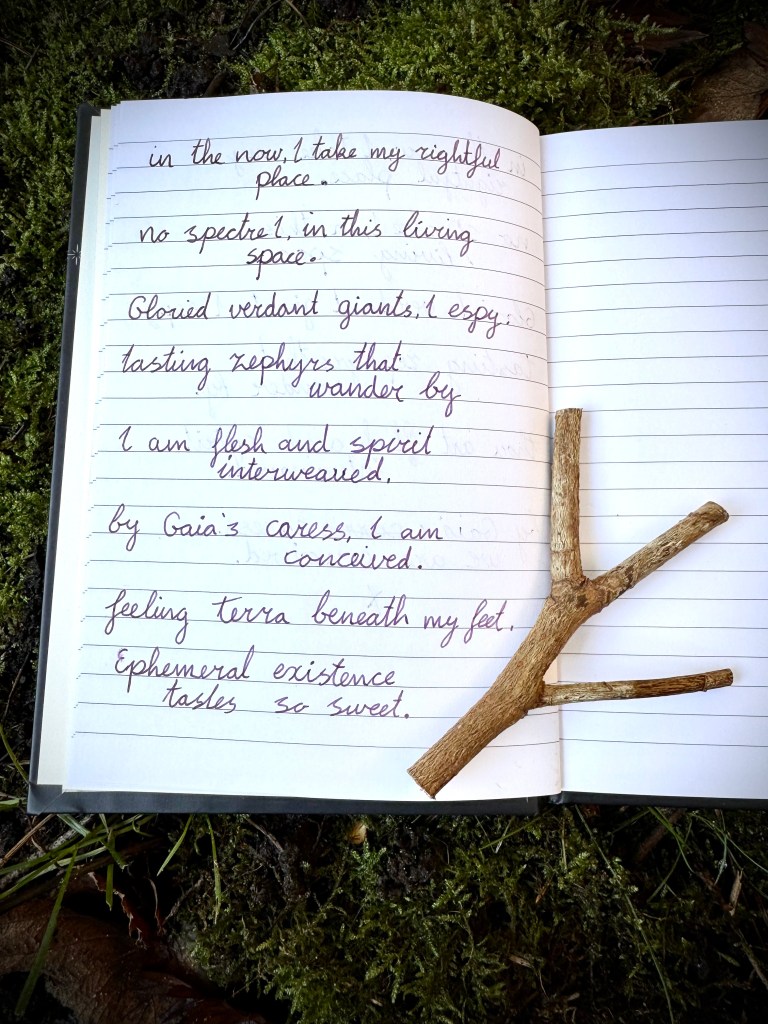 in the now, I take my rightful
place.
no spectre I, in this living
space.
Gloried verdant giants, I espy.
tasting zephyrs that
wander by
I am flesh and spirit
interweaved.
by Gaia's caress, I am
conceived.
feeling terra beneath my feet.
Ephemeral existence
tastes so sweet.